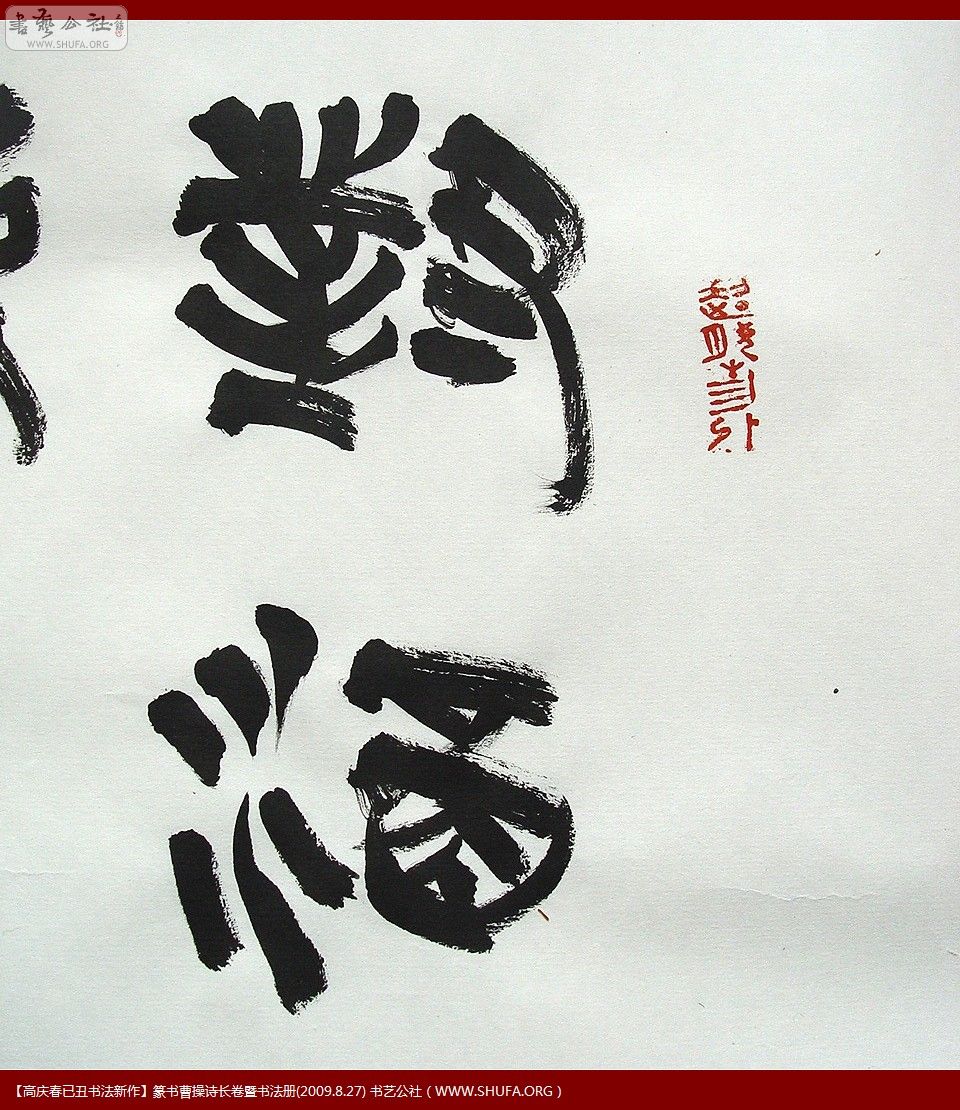 書藝公社
WWW.SHUFA.ORG
對酒
【高庆春已丑书法新作】篆书曹操诗长卷暨书法册(2009.8.27) 书艺公社 ( WWW.SHUFA.ORG )